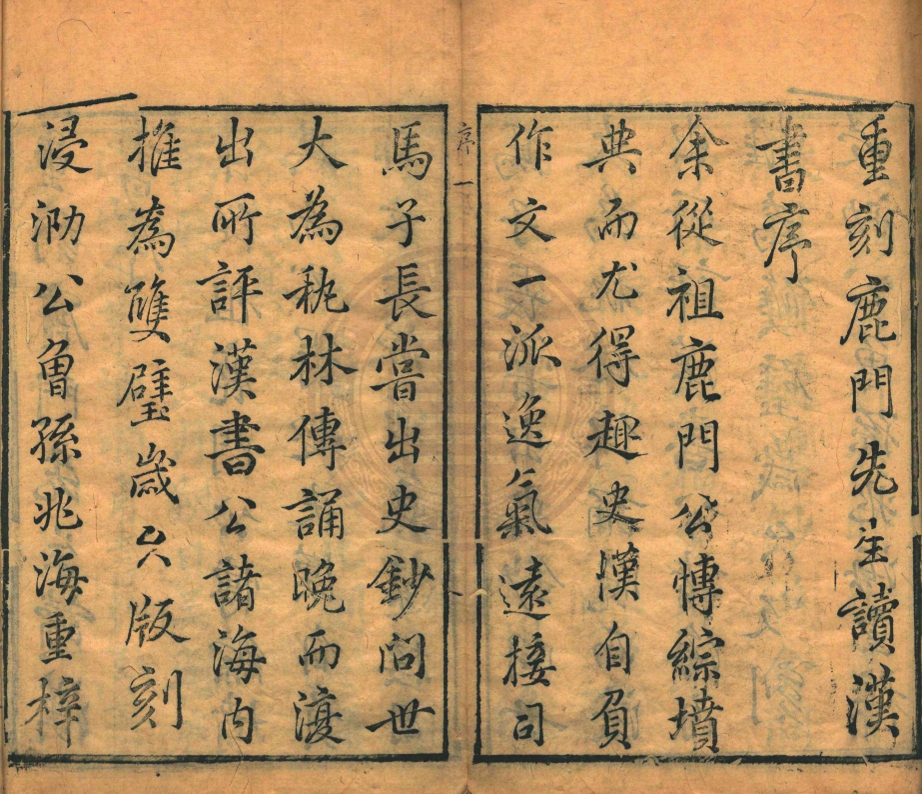 重刻鹿門先生讀漢
書序
余從祖鹿門公博綜墳
典而尤得趣史漢自負
作文一派逸氣遠接司
序 一
馬子長嘗出史鈔問世
大為秇林傳誦晚而復
出所評漢書公諸海内
推為雙璧歲久版刻
浸泐公曾孫兆海重梓